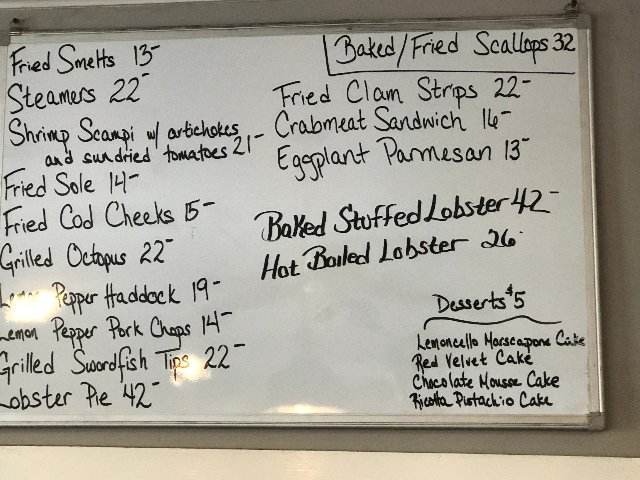 Fried Smelts 13-
Steamers 22-
Shrimp Scampi w/ artichokes
and sundried tomatoes 21-
Fried Sole 14-
Fried Cod Cheeks 15-
Grilled Octopus 22-
Lemon Pepper Haddock 19-
Lemon Pepper Pork Chops 14-
Grilled Swordfish Tips 22-
Lobster Pie 42-
Baked/Fried Scallops 32
Fried Clam Strips 22-
Crabmeat Sandwich 16-
Eggplant Parmesan 13-
Baked Stuffed Lobster 42-
Hot Boiled Lobster 26-
Desserts $5
Lemoncello Marscapone Cake
Red Velvet Cake
Chocolate Mousse Cake
Ricotta Pistachio Cake